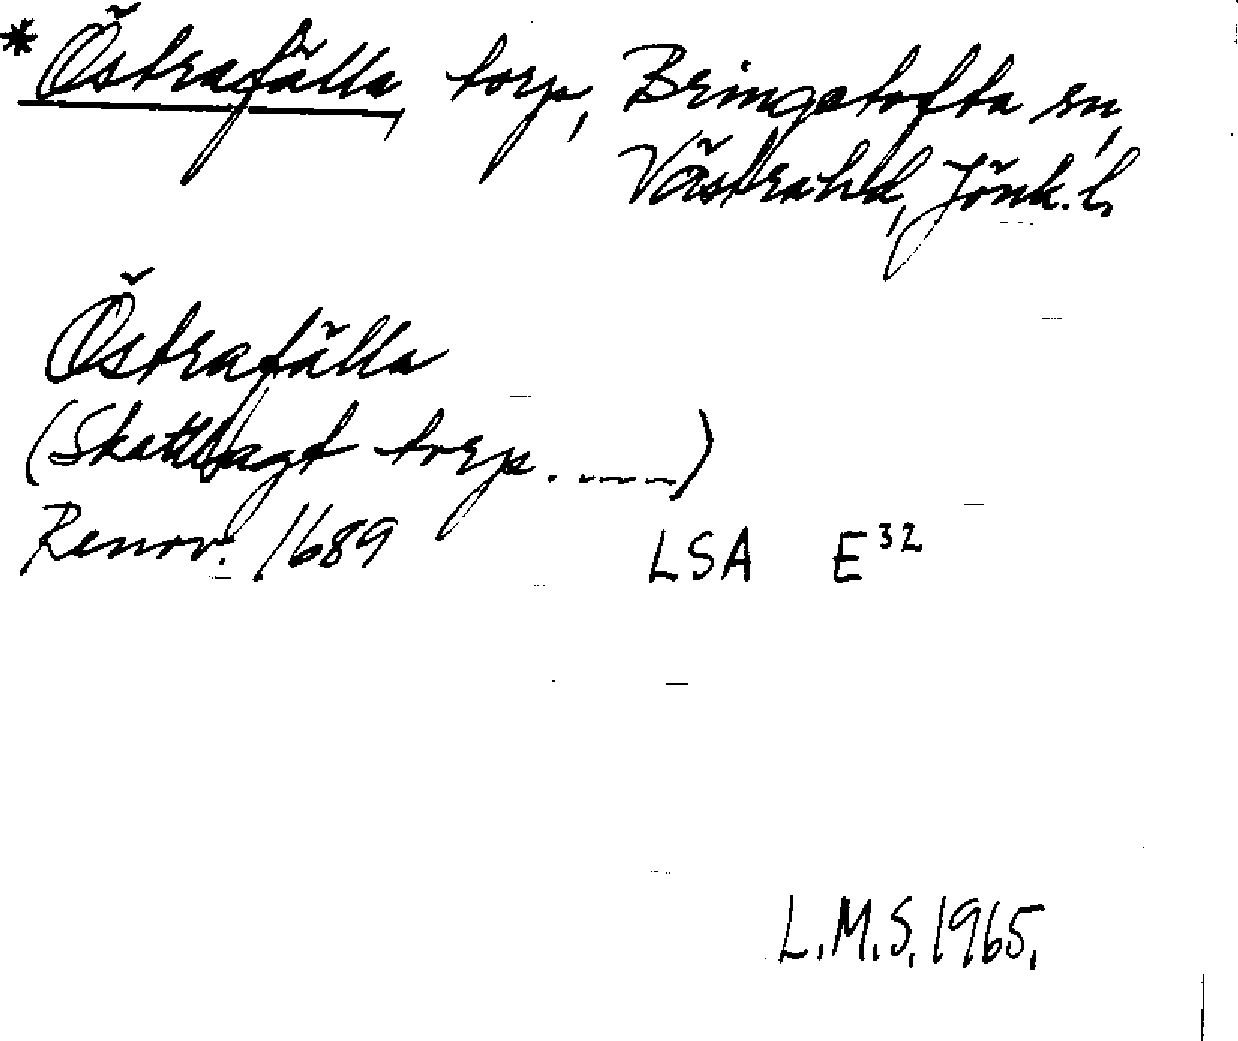 * Östrafälla, torp, Bringetofta sn,
Västra hd, Jönk. l.
Östrafälla
(Skattlagt torp. ----)
Renov. 1689 LSA E³²
L.M.S. 1965.